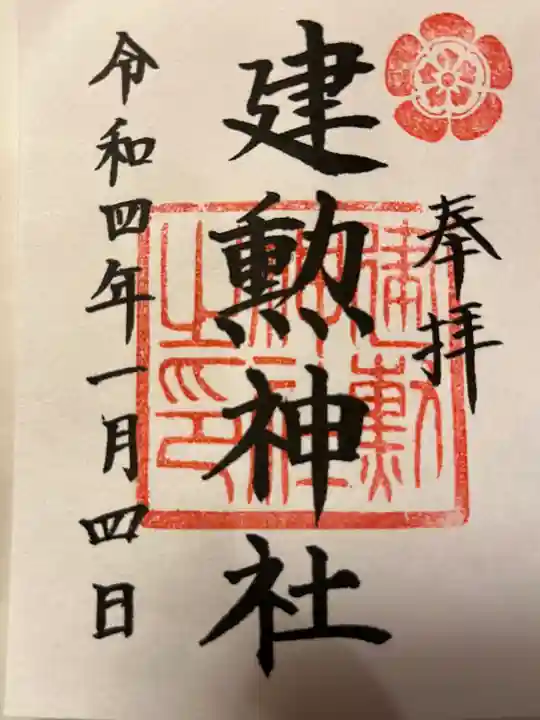 奉拝
建勲神社
建勲
神社
之印
令和四年一月四日